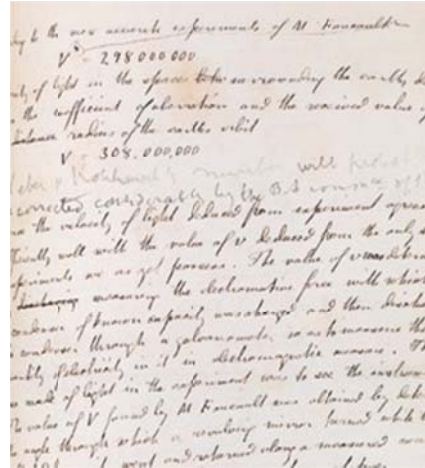 ding to the more accurate experiments of M. Foucault
V = 298000000
ity of light in the space surrounding the earth
the coefficient of aberration and the received value of
radius of the earths orbit
V = 308.000,000
Weber & Kohlrausch's number will probab
corrected considerably by the B.A
the velocity of light deduced from experiment agrees
well with the value of v deduced from the only
experiments we as yet possess. The value of v was determ
measuring the electromotive force with which
condenser of known capacity was charged and then discha
condenser through a galvanometer so as to measure the
quantity of electricity in it in electromagnetic measure. Th
made of light in the experiment was to see the instrum
The value of V found by M Foucault was obtained by dete
angle through which a revolving mirror turned while
went and returned along a measured